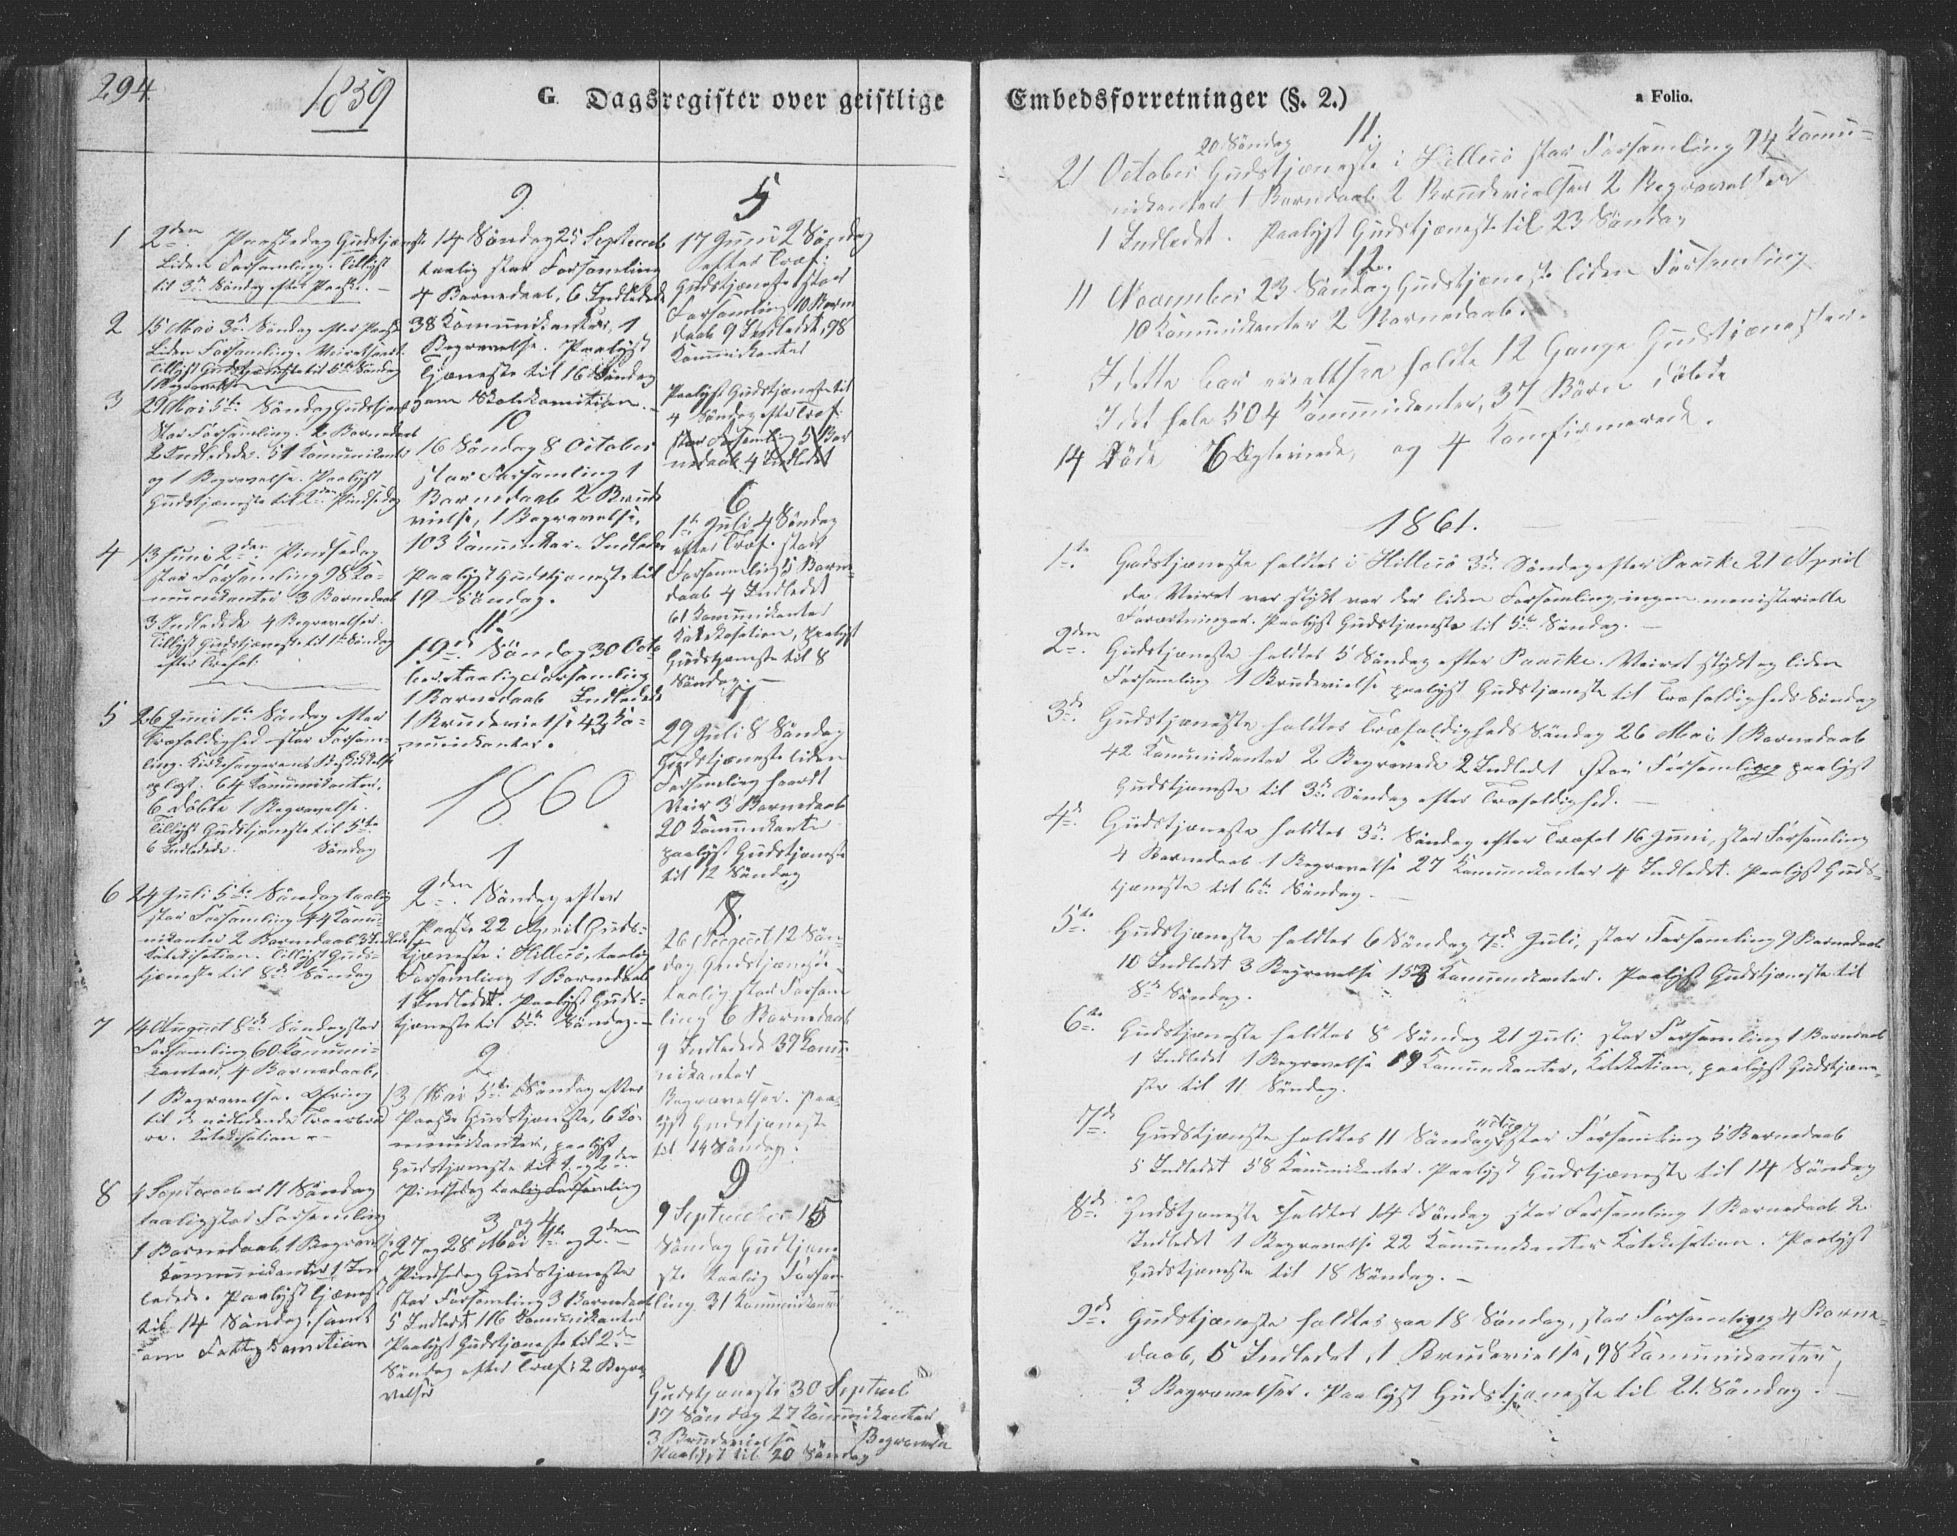 294
1859
G. Dagsregister over geistlige
Embedsforretninger (§. 2.)
a Folio.
1 2den Paaskedag Gudstjæneste
Liden Forsamling. Tillyst
til 3die Søndag efter Paaske.
2 15 Mai 3die Søndag efter Paaske
Liden Forsamling. Veiret haardt
Tillyst Gudstjæneste til 5te Søndag
1 Begravelse
3 29 Mai 5te Søndag Gudstjæneste
Stor Forsamling. 2 Barnedaab
2 Indledede. 51 Kommunikanter
og 1 Begravelse. Paalyst
Gudstjæneste til 2den Pindsedag
4 13 Juni 2den Pindsedag
stor Forsamling 98 Ko-
munikanter 3 Barnedaab
3 Indledede 4 Begravelser.
Tillyst Gudstjæneste til 1ste Søndag
efter Trefol.
5 26 Juni 1ste Søndag efter
Trefoldighed stor Forsam-
ling. Kirkesangerens
oplæst. 64 Komunikanter.
6 Døbte 1 Begravelse.
Tillyst Gudstjæneste til 5te
6 Indledede. Søndag
6 24 Juli 5te Søndag taalig
stor Forsamling 44 Komu-
nikanter 2 Barnedaab 3 Indledet
Katekisation. Tillyst Guds-
tjæneste til 8de Søndag
7 14 August 8de Søndag stor
Forsamling 60 Komuni-
kanter, 4 Barnedaab,
1 Begravelse. Ofring
til de nødlidende
Katekisation
8 4 September 11 Søndag
taalig stor Forsamling
1 Barnedaab, 1 Begravelse
Kommunikanter 1 Ind-
ledede. Paalyst Tjæneste
til 14 Søndag, samt
om Fattigkomition
9.
14 Søndag 25 Septemb
taalig stor Forsamling
4 Barnedaab, 6 Indledede
38 Komunikanter, 1
Begravelse. Paalyst
Tjæneste til 16 Søndag
om Skolekomition.
10
16 Søndag 8 October
stor Forsamling 1
Barnedaab 2 Brude-
vielse, 1 Begravelse,
103 Komunikan. Indledet
Paalyst Gudstjæneste til
19 Søndag.
11.
19de Søndag 30 Octo-
ber. taalig Forsamling
1 Barnedaab Indledede
1 Brudevielse 42 Ko-
munikanter.
1860
1
2den Søndag efter
Paaske 22 April Guds-
tjæneste i Hillesø, taalig
Forsamling 1 Barnedaab
1 Indledet. Paalyst Guds-
tjæneste til 5te Søndag.
2
13 Mai 5te Søndag efter
Paaske Gudstjæneste, 6 Ko-
munikanter, paalyst
Gudstjæneste til 1 og 2den
Pindsedag taalig Forsamling
3 og 4
27 og 28 Mai 1ste og 2den
Pindsedag Gudstjæneste
stor Forsamling 3 Barnedaab
5 Indledet 116 Komunikanter
Paalyst Gudstjæneste til 2den
Søndag efter Træf: 2 Begra-
velser
5
17 Juni 2 Søndag
efter Træf:
Gudstjæneste stor
Forsamling 10 Barne
daab 9 Indledet, 98
Kommunikanter
Paalyst Gudstjæneste til
4 Søndag efter Træf:
stor Forsamling 5 Bar
nedaab 4 Indledet
6
1ste Juli 4 Søndag
efter Træf. stor
Forsamling 5 Barne-
daab 4 Indledet
61 Kommunikanter
Katekisation, paalyst
Gudstjæneste til 8
Søndag.
7
29 Juli 8 Søndag
Gudstjæneste liden
Forsamling haardt
Veir 3 Barnedaab
20 Kommunikanter
paalyst Gudstjæneste
til 12 Søndag
8.
26 August 12 Søn-
dag Gudstjæneste
taalig stor Forsam
ling 6 Barnedaab
9 Indledede 39 Komu-
nikanter
Begravelser. Paa-
lyst Gudstjæneste
til 14 Søndag.
9
9 September 15
Søndag Gudtjæne
ste taalig Forsam
ling 31 Komunikanter
10
Gudstjæneste 30 Septemb
17 Søndag 27 Komunikanter
3 Brudevielse Begravelse
Paalyst til 20 Søndag
11.
20 Søndag
21 October Gudstjæneste i Hillesø stor Forsamling 74 Komu-
nikanter 1 Barnedaab 2 Brudevielser 2 Begravelser
1 Indledet. Paalyst Gudstjæneste til 23 Søndag
12.
11 November 23 Søndag Gudstjæneste liden Forsamling
10 Komunikanter 2 Barnedaab.
I dette Aar er altsaa holdte 12 Gange Gudstjænester.
I det hele 504 Komunikanter, 37 Børn døbte
14 Døde 6 Egteviede, og 4 Konfirmerede.
1861.
1ste Gudstjæneste holdtes i Hillesø 3die Søndag efter Paaske 21 April
da Veiret var stykt var der liden Forsamling, ingen ministerielle
Foreretninger. Paalyst Gudstjæneste til 5te Søndag.
2den Gudstjæneste holdtes 5 Søndag efter Paaske. Veiret stykt og liden
Forsamling 1 Brudevielse paalyst Gudstjæneste til Træfoldigheds Søndag
3die Gudstjæneste holdtes Træfoldigheds Søndag 26 Mai 1 Barnedaab
42 Komunikanter 2 Begravede 2 Indledet stor Forsamling paalyst
Gudstjæneste til 3die Søndag efter Træfoldighed.
4de Gudstjæneste holdtes 3die Søndag efter Træfol 16 Juni, stor Forsamling
4 Barnedaab 1 Begravelse 27 Komunikanter 4 Indledet. paalyst Guds-
tjæneste til 6te Søndag.
5te Gudstjæneste holdtes 6 Søndag 7de Juli, stor Forsamling 9 Barnedaab
10 Indledet 3 Begravelse 153 Komunikanter. Paalyst Gudstjæneste til
8de Søndag.
6te Gudstjæneste holdtes 8 Søndag 21 Juli stor Forsamling 1 Barnedaab
1 Indledet 1 Begravelse 19 Komunikanter, Katekation, paalyst Gudstjæne-
ste til 11 Søndag.
7de Gudstjæneste holdtes 11 Søndag taalig stor Forsamling 5 Barnedaab
5 Indledet 58 Komunikanter. Paalyst Gudstjæneste til 14 Søndag
8de Gudstjæneste holdtes 14 Søndag stor Forsamling 1 Barnedaab 2
Indledet 1 Begravelse 22 Komunikanter Katekisation. Paalyst
Gudstjæneste til 18 Søndag.
9de Gudstjæneste holdtes paa 18 Søndag, stor Forsamling 4 Barne-
daab, 5 Indledet, 1 Brudevielse, 98 Komunikanter,
3 Begravelser. Paalyst Gudstjæneste til 21. Søndag.